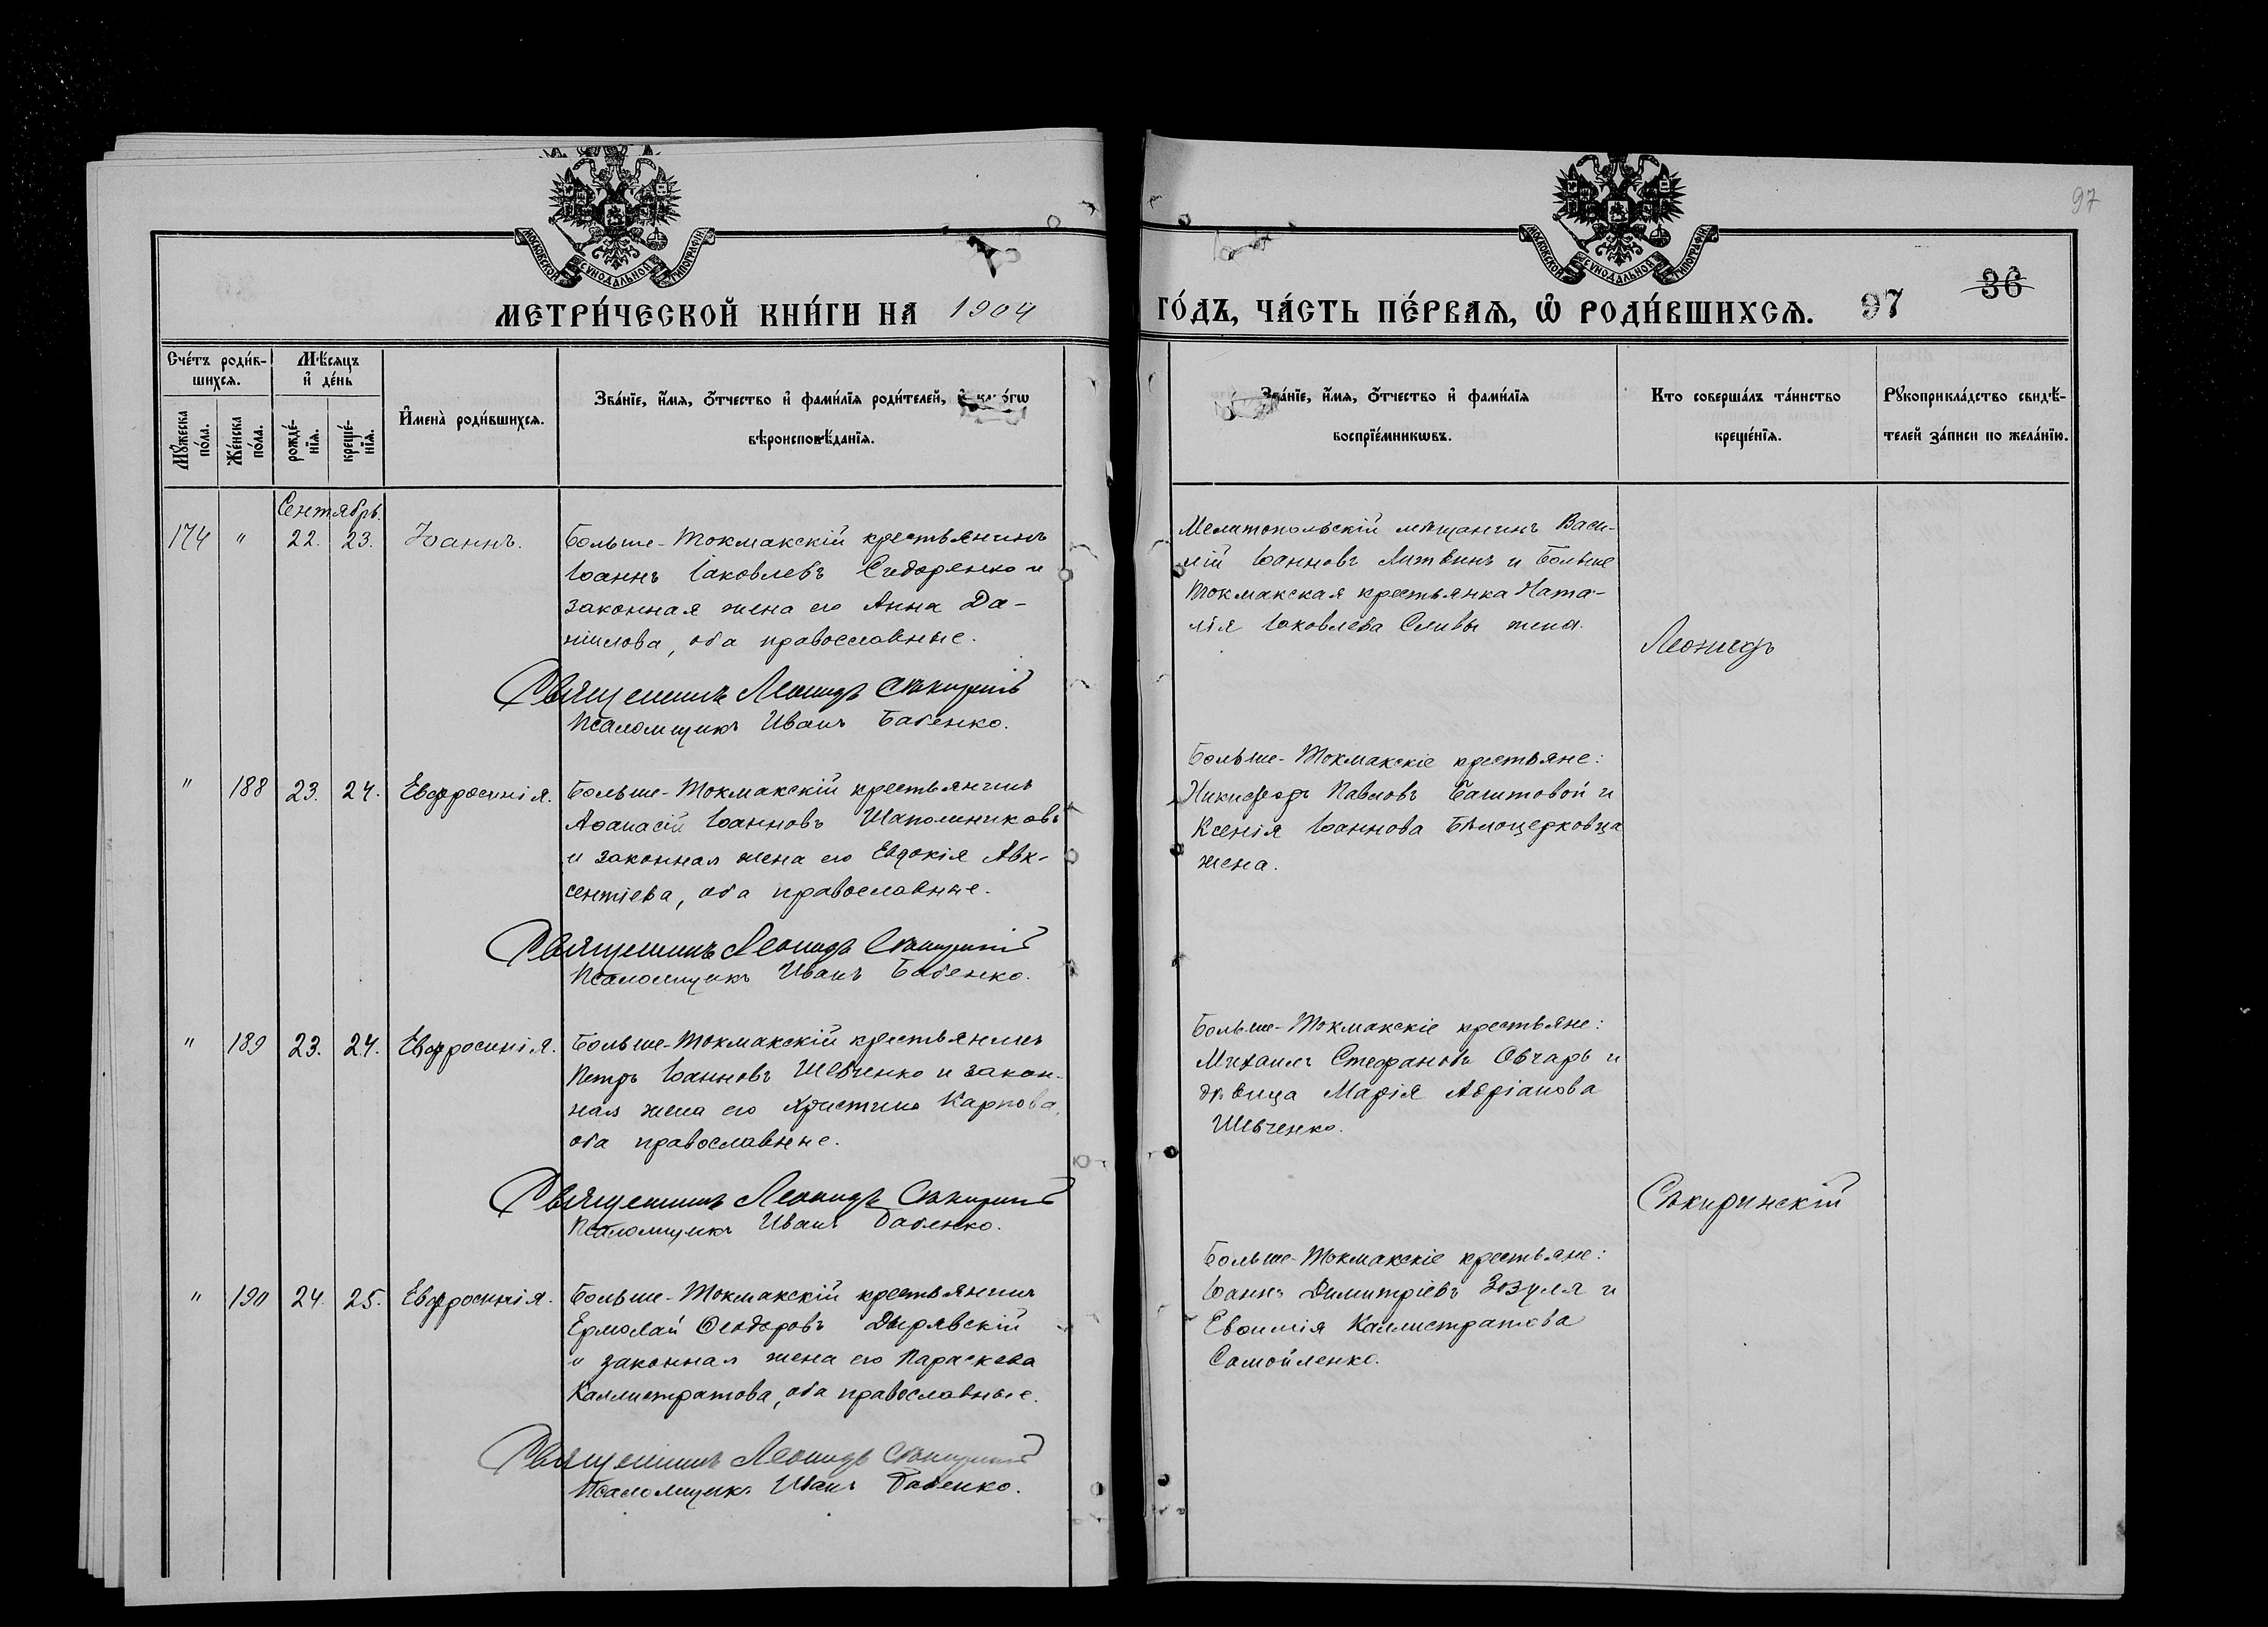 97
МОСКОВСКОЙ СѴНОДАЛЬНОЙ ТИПОГРАФІИ
МОСКОВСКОЙ СѴНОДАЛЬНОЙ ТИПОГРАФІИ
МЕТРИ́ЧЕСКОЙ КНИ́ГИ НА 1904
ГО́ДЪ, ЧА́СТЬ ПЕ́РВАѦ, Ѽ РОДИ́ВШИХСѦ. 97 36
Счéтъ роди́в-
шихсѧ.
Мꙋ́жеска по́ла.
Жéнска по́ла.
Мѣ́сѧцъ
и҆ дéнь
рождé-
нїѧ.
крещé-
нїѧ.
И҆мена̀ роди́вшихсѧ.
Зва́нїе, и҆́мѧ, ѻ҆́тчество и҆ фами́лїѧ роди́телей, и҆ каќогѡ
вѣроисповѣ́данїѧ.
Зва́нїе, и҆́мѧ, ѻ҆́тчество и҆ фами́лїѧ
воспрїéмникѡвъ.
Кто соверша́лъ та́инство
крещéнїѧ.
Рꙋкоприкла́дство свидѣ́-
телей за́писи по жела́нїю.
Сентябрь.
174 " 22. 23. Іоаннъ.
Больше-Токмакскій крестьянинъ
Іоаннъ Іаковлевъ Сидоренко и
законная жена его Анна Да-
ніилова, оба православные.
Священникъ Леонидъ Сѣкиринскій
Псаломщикъ Иванъ Бабенко.
Мелитопольскій мѣщанинъ Васи-
лій Іоанновъ Литвинъ и Больше
Токмакская крестьянка Ната-
лія Іаковлева Сливы жена.
Леонидъ
" 188 23. 24. Евфросинія.
Больше-Токмакскій крестьянинъ
Аѳанасій Іоанновъ Шаполинниковъ
и законная жена его Евдокія Авк-
сентіева, оба православные.
Священникъ Леонидъ Сѣкиринскій
Псаломщикъ Иванъ Бабенко.
Больше-Токмакскіе крестьяне:
Никифоръ Павловъ Баштовой и
Ксенія Іоаннова Бѣлоцерковца
жена.
" 189 23. 24. Евфросинія.
Больше-Токмакскій крестьянинъ
Петръ Іоанновъ Шевченко и закон-
ная жена его Христина Карпова,
оба православные.
Священникъ Леонидъ Сѣкиринскій
Псаломщикъ Иванъ Бабенко.
Больше-Токмакскіе крестьяне:
Михаилъ Стефановъ Овчаръ и
дѣвица Марія Адріанова
Шевченко.
Сѣкиринскій
" 190 24. 25. Евфросинія.
Больше-Токмакскій крестьянинъ
Ермолай Ѳеодоровъ Дырявскій
и законная жена его Параскева
Каллистратова, оба православные.
Священникъ Леонидъ Сѣкиринскій
Псаломщикъ Иванъ Бабенко.
Больше-Токмакскіе крестьяне:
Іоаннъ Димитріевъ Зозуля и
Евѳимія Каллистратова
Самойленко.